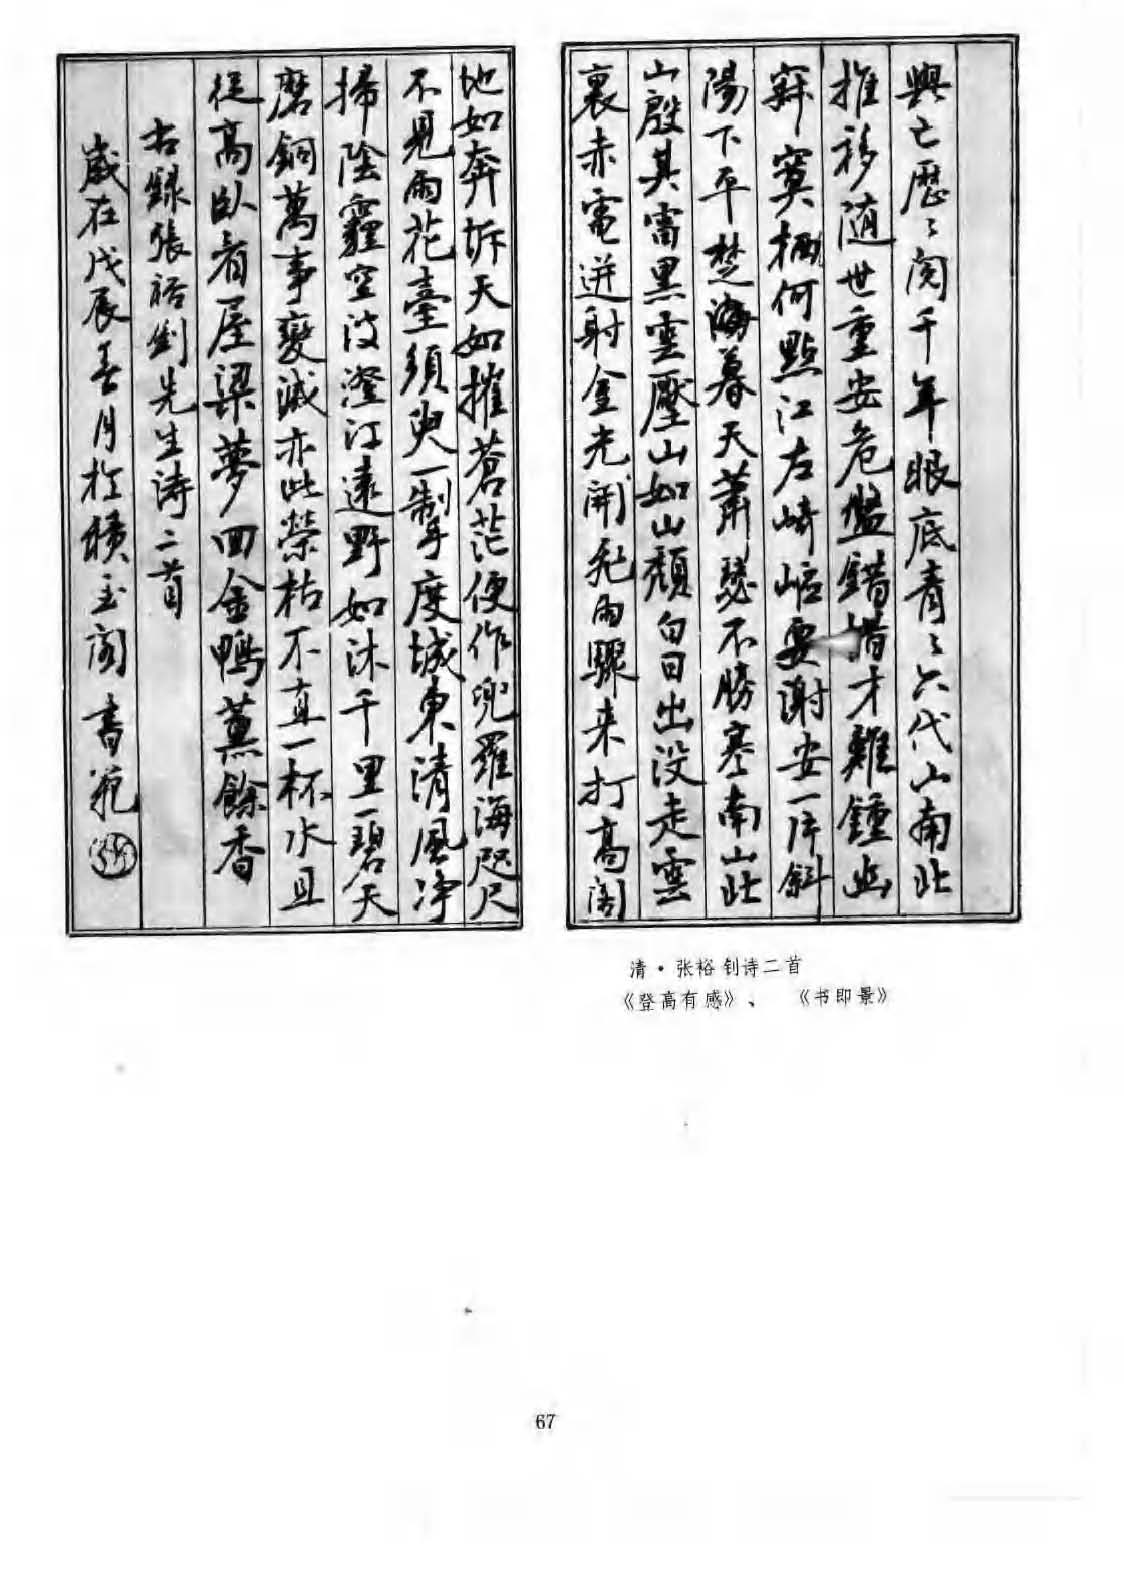 興亡歷〻閱千年眼底青〻六代山南北
推移随世重安危盤錯惜才難鍾山
寂寞栖何點江左崎嶇要謝安一片斜
陽下平楚海暮天蕭瑟不勝寒南山此
山殷其雷黑雲壓山如山頹白日出没走雲
裏赤電迸射金光開飛雨驟来打高閣
地如奔坼天如摧蒼茫便作兜羅海咫尺
不見雨花臺須臾一掣度城東清風净
掃陰霾空汝澄江遠野如沐千里一碧天
磨銅萬事變滅亦此榮枯不直一杯水且
從高臥看屋梁夢回金鴨薰餘香
右錄張裕釗先生诗二首
歲在戊辰春月於積玉阁書範
清·张裕钊诗二首
《登高有感》、 《书即景》
67